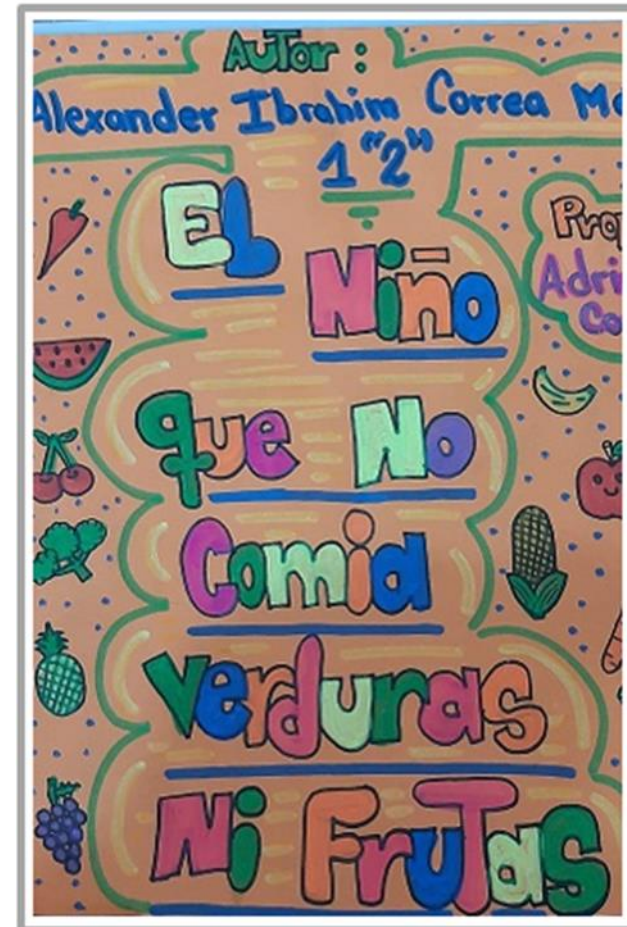 Autor :
Alexander Ibrahim Correa
1 "2"
El
Niño
que No
Comia
verduras
Ni Frutas